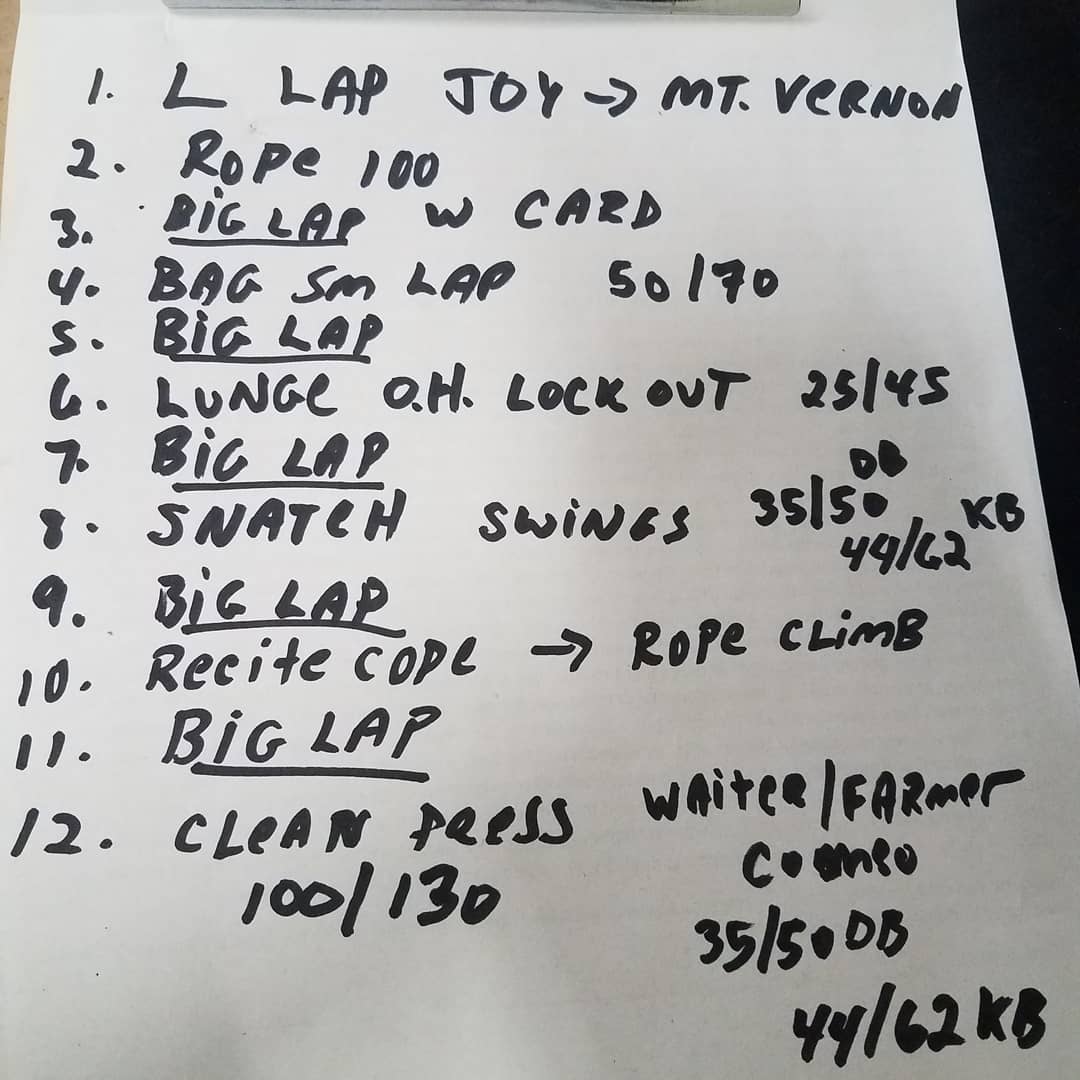 1. L LAP JOY → MT. VERNON
2. ROPE 100
3. BIG LAP W CARD
4. BAG SM LAP 50/70
5. BIG LAP
6. LUNGE O.H. LOCK OUT 25/45
7. BIG LAP
DB
8. SNATCH SWINGS 35/50 KB
44/62
9. BIG LAP
10. Recite CODE → ROPE CLIMB
11. BIG LAP
12. CLEAN PRESS WAITER/FARMER
100/130 COMBO
35/50 DB
44/62 KB